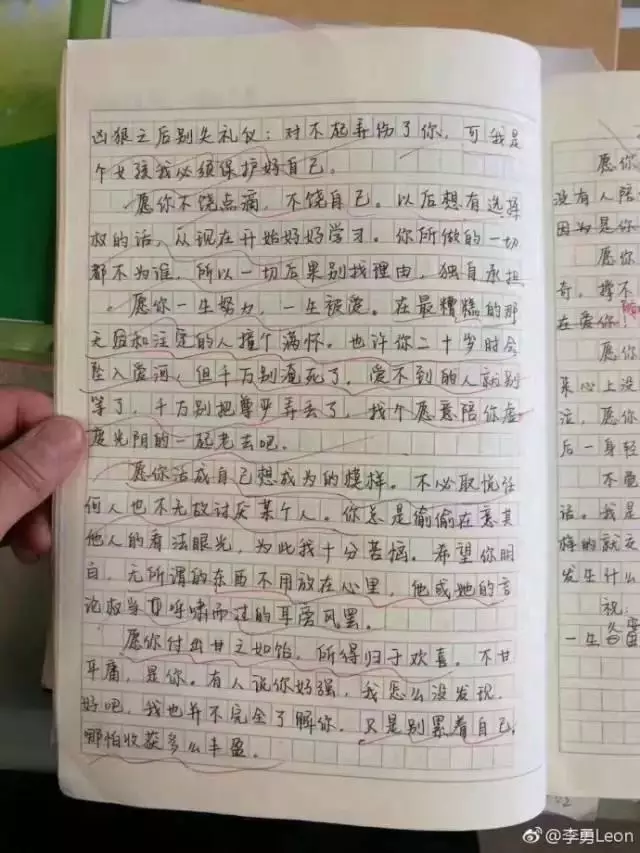 凶狠之后别失礼仪：对不起弄伤了你，可我是
个女孩我必须保护好自己。
愿你不饶点病，不饶自己。以后想有选择
权的话，从现在开始好好学习。你所做的一切
都不为谁，所以一切后果别找理由，独自承担
愿你一生努力，一生被爱。在最糟糕的那
天给和注定的人撞个满怀。也许你二十岁时会
坠入爱河，但千万别淹死了，爱不到的人就别
等了，千万别把尊严弄丢了，找个愿意陪你虚
度光阴的一起老去吧。
愿你活成自己想成为的模样。不必取悦任
何人也不无故讨厌某个人。你总是偷偷在意其
他人的看法眼光，为此我十分苦恼。希望你明
白，无所谓的东西不用放在心里，他或她的言
论权当呼啸而过的耳旁风罢。
愿你付出甘之如饴，所得归于欢喜。不甘
平庸，是你。有人说你好强，我怎么没发现，
好吧，我也并不完全了解你，只是别累着自己，
哪怕收获多么丰盈。
愿你
没有人陪
因为是你
愿你
奇，撑不
在爱你！
愿你
来心上没
泣，愿你
后一身轻
不要
话。我是
样的就交
发生什么
祝：
一生
@李勇Leon